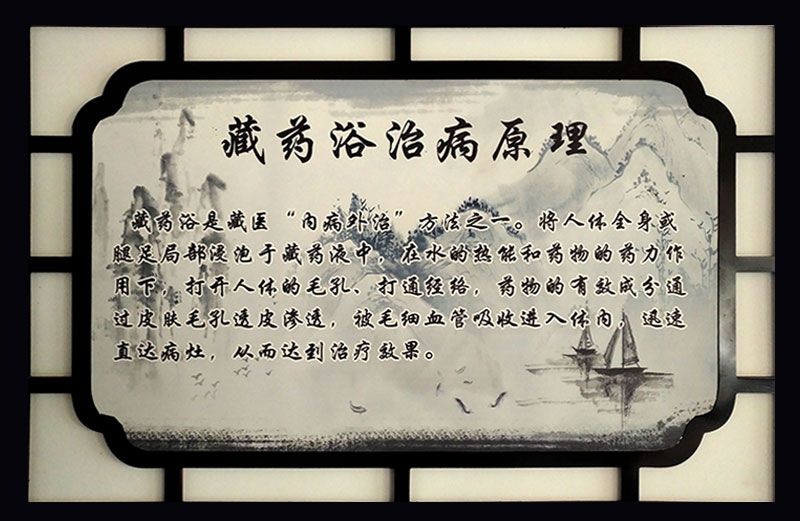 藏药浴治病原理
藏药浴是藏医“内病外治”方法之一。将人体全身或
腿足局部浸泡于藏药液中，在水的热能和药物的药力作
用下，打开人体的毛孔、打通经络，药物的有效成分通
过皮肤毛孔透皮渗透，被毛细血管吸收进入体内，迅速
直达病灶，从而达到治疗效果。